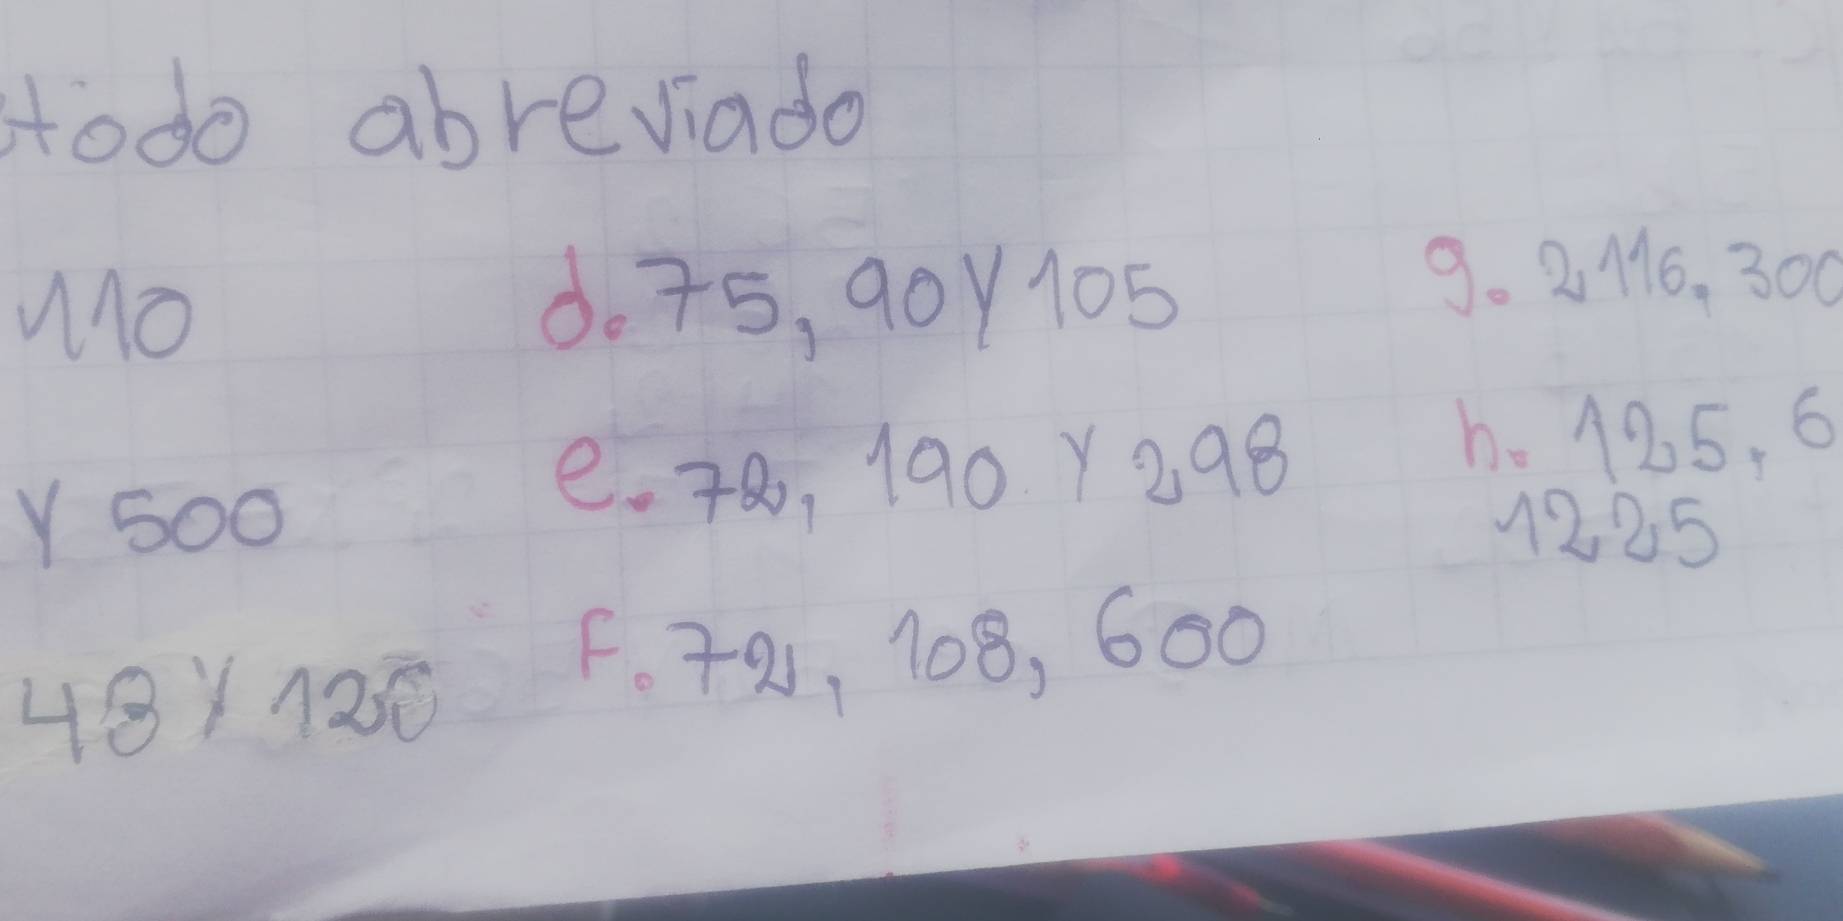 todo abreviado
110
d. 75, 90 y 105
g. 2116, 300
y 500
e. 72, 190 y 298
h. 125, 6
1225
48 y 120
F. 72, 108, 600